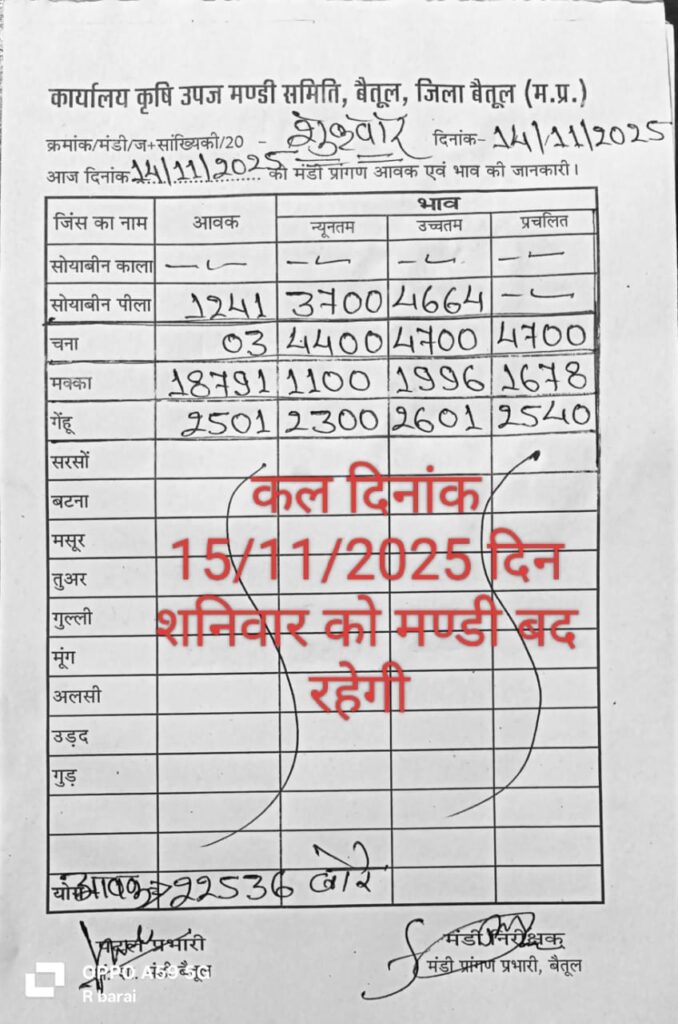 कार्यालय कृषि उपज मण्डी समिति, बैतूल, जिला बैतूल (म.प्र.)
क्रमांक/मंडी/ज+सांख्यिकी/20 - शुक्रवार दिनांक- 14/11/2025
आज दिनांक 14/11/2025 की मंडी प्रांगण आवक एवं भाव की जानकारी।
जिंस का नाम आवक भाव
न्यूनतम उच्चतम प्रचलित
सोयाबीन काला — — — —
सोयाबीन पीला 1241 3700 4664 —
चना 03 4400 4700 4700
मक्का 18791 1100 1996 1678
गेंहू 2501 2300 2601 2540
सरसों
बटना
मसूर
तुअर
गुल्ली
मूंग
अलसी
उड़द
गुड़
कल दिनांक
15/11/2025 दिन
शनिवार को मण्डी बद
रहेगी
आवक 22536 बोरे
प्रभारी मंडी निरीक्षक
मंडी बैतूल मंडी प्रांगण प्रभारी, बैतूल
OPPO A59 5G
R barai